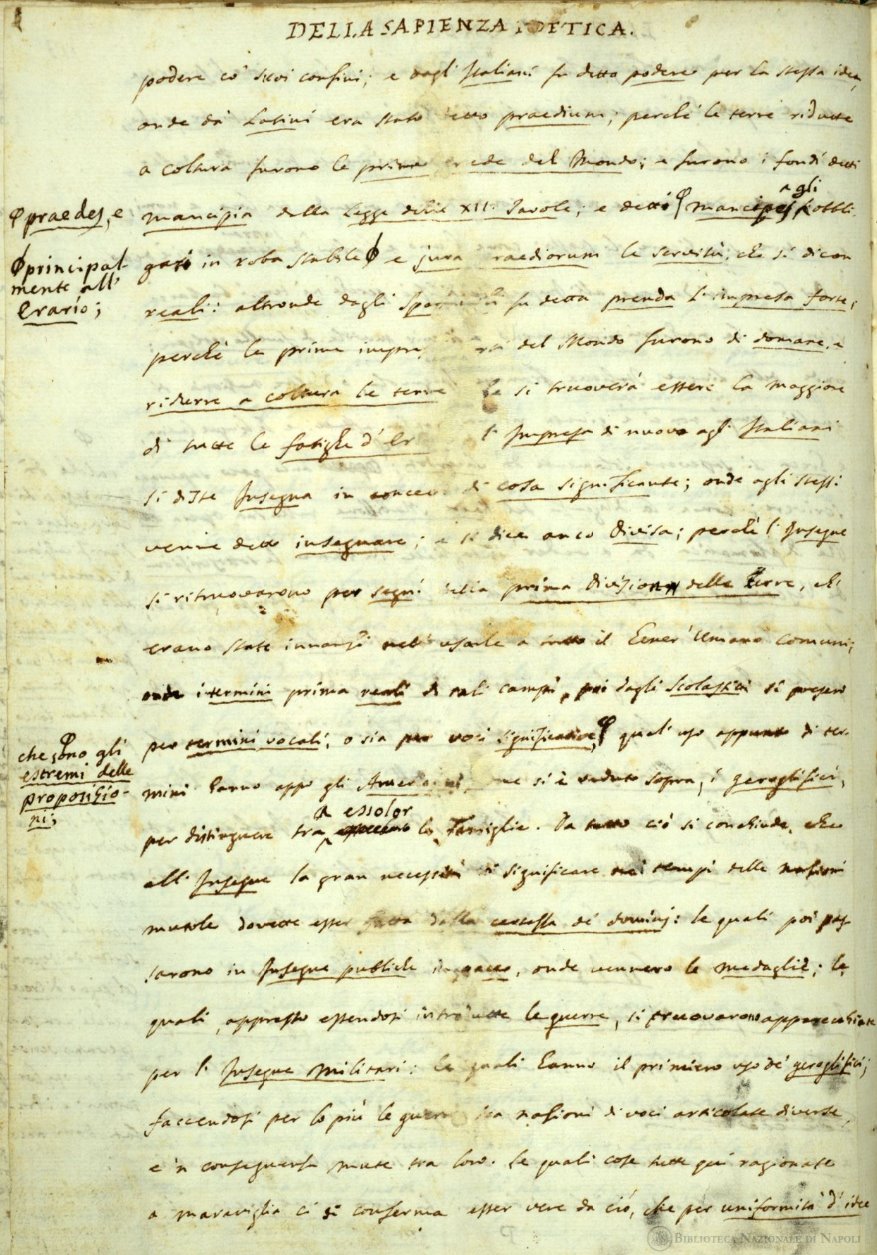 DELLA SAPIENZA POETICA.
podere co' suoi confini; e dagli Italiani fu detto podere per la stessa idea,
onde da' Latini era stato detto praedium; perchè le terre ridutte
a coltura furono le prime prede del Mondo; e furono i fondi detti
mancipia dalla Legge delle XII. Tavole; e detti φ mancipes agli obbli-
φ praedes, e
gati in roba stabile φ e jura praediorum le servitù, che si dicon
φ principal-
mente all'
Erario;
reali: altronde dagli Spagnuoli fu detta prenda l'impresa forte;
perchè le prime impre del Mondo furono di domare, e
ridurre a coltura le terre si truoverà essere la maggiore
di tutte le fatighe d'Er l'Impresa di nuovo agli Italiani
si disse Insegna in concetto di cosa significante; onde agli stessi
venne detto insegnare; e si dice anco Divisa; perchè l'Insegne
si ritruovarono per segni della prima divisione delle Terre, ch'
erano state innanzi nell'usarle a tutto il Gener' Umano comuni;
onde i termini prima reali di tali campi, poi dagli Scolastici si presero
per termini vocali, o sia per voci significative, φ quali uso appunto di ter-
che φ sono gli
estremi delle
proposizio-
ni;
mini hanno appo gli Americani, come si è veduto sopra, i geroglifici,
per distinguere tra essolor le Famiglie. Da tutto ciò si conchiude, che
all'Insegne la gran necessità di significare nei tempi delle nazioni
mutole dovette esser fatta dalla certezza de' dominj: le quali poi pas-
sarono in Insegne publiche in pace, onde vennero le medaglie; le
quali, appresso essendosi introdutte le guerre, si truovarono apparecchiate
per l'Insegne Militari: le quali hanno il primiero uso de' geroglifici;
faccendosi per lo più le guerre tra nazioni di voci articolate diverse,
e 'n conseguenza mute tra loro. Le quali cose tutte quì ragionate
a maraviglia ci si conferma esser vere da ciò, che per uniformità d'idee
BIBLIOTECA NAZIONALE DI NAPOLI